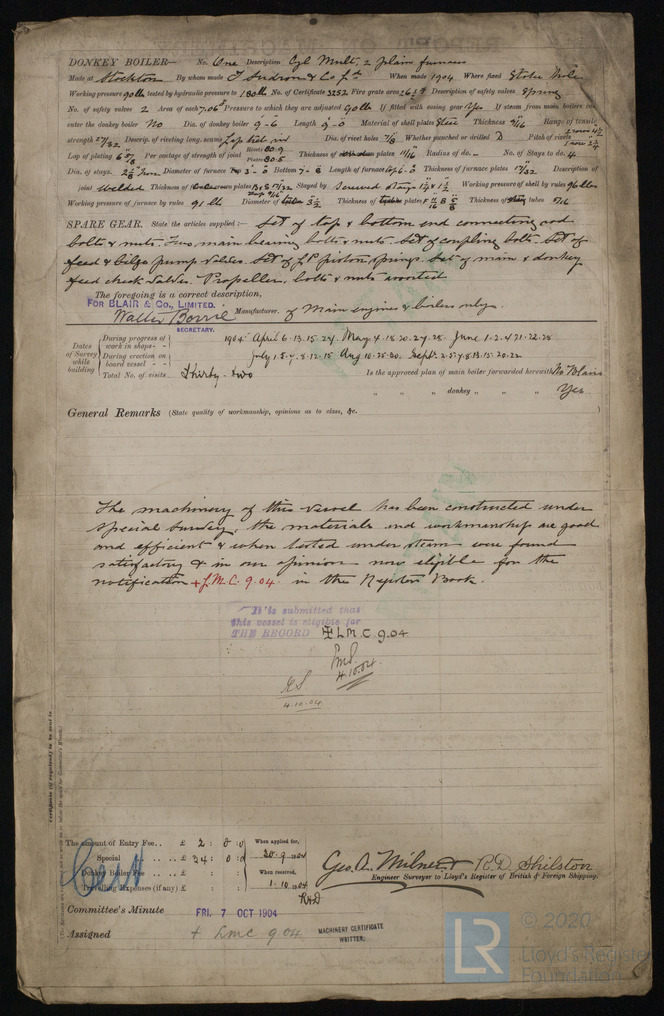 DONKEY BOILER— No. One Description Cyl Mult, 2 plain furnaces
Made at Stockton By whom made T Sudron & Co Ltd When made 1904 Where fixed Stoke hole
Working pressure 90 lb tested by hydraulic pressure to 180 lb No. of Certificate 3252 Fire grate area Description of safety valves Spring
No. of safety valves 2 Area of each 7.06 Pressure to which they are adjusted 90 lb If fitted with easing gear Yes If steam from main boilers can
enter the donkey boiler No Dia. of donkey boiler 9-6 Length 9-0 Material of shell plates Steel Thickness 9/16 Range of tensile
strength 27/32 Descrip. of riveting long. seams Lap Dia. of rivet holes 7/8 Whether punched or drilled D Pitch of rivets
Lap of plating 6 5/8 Per centage of strength of joint Rivets 80.9 Plates 80.5 Thickness of plates 11/16 Radius of do. — No. of Stays to do. 4
Dia. of stays. Diameter of furnace 3-0 Bottom Length Thickness of furnace plates 17/32 Description of
joint Welded Thickness of plates Stayed by Screwed stays Working pressure of shell by rules 96 lbs
Working pressure of furnace by rules 91 lb Diameter of 3 1/2 Thickness of plates Thickness of tubes 5/16
SPARE GEAR. State the articles supplied:— Set of top & bottom end connecting rod
bolts & nuts. Two main bearing bolts & nuts. Set of coupling bolts. Set of
feed & bilge pump valves. Set of piston springs. Set of main & donkey
feed check valves. Propeller, bolts & nuts assorted
The foregoing is a correct description,
FOR BLAIR & Co., LIMITED.
Walter Borrie Manufacturer. of Main engines & boilers only.
SECRETARY.
Dates of Survey while building
During progress of work in shops - - 1904 April 6.13.15.24. May 4.18.20.24.25. June 1.2.4.21.22.28
During erection on board vessel - - July 1.5.7.8.12.15 Aug 10.25.30. Sept. 2.5.7.8.13.15.20.22
Total No. of visits Thirty-two Is the approved plan of main boiler forwarded herewith No Blairs
" " " donkey " " " Yes
General Remarks (State quality of workmanship, opinions as to class, &c.
The machinery of this vessel has been constructed under
special survey, the materials and workmanship are good
and efficient & when tested under steam were found
satisfactory & in our opinion now eligible for the
notification + L.M.C. 9.04. in the Register Book.
It is submitted that
this vessel is eligible for
THE RECORD + LMC 9.04
4.10.04
4.10.04
Certificate (if required) to be sent to
The amount of Entry Fee.. £ 2 : 0 : 0 When applied for,
Special .. .. £ 24 : 0 : 0 30.9.1904
Donkey Boiler Fee .. .. £ : : When received,
Travelling Expenses (if any) £ : : 1.10.1904
Geo. A. Milner & R.D. Shilston
Engineer Surveyor to Lloyd's Register of British & Foreign Shipping.
Committee's Minute FRI. 7 OCT 1904
Assigned + LMC 9.04
MACHINERY CERTIFICATE
WRITTEN.
LR © 2020
Lloyd's Register
Foundation